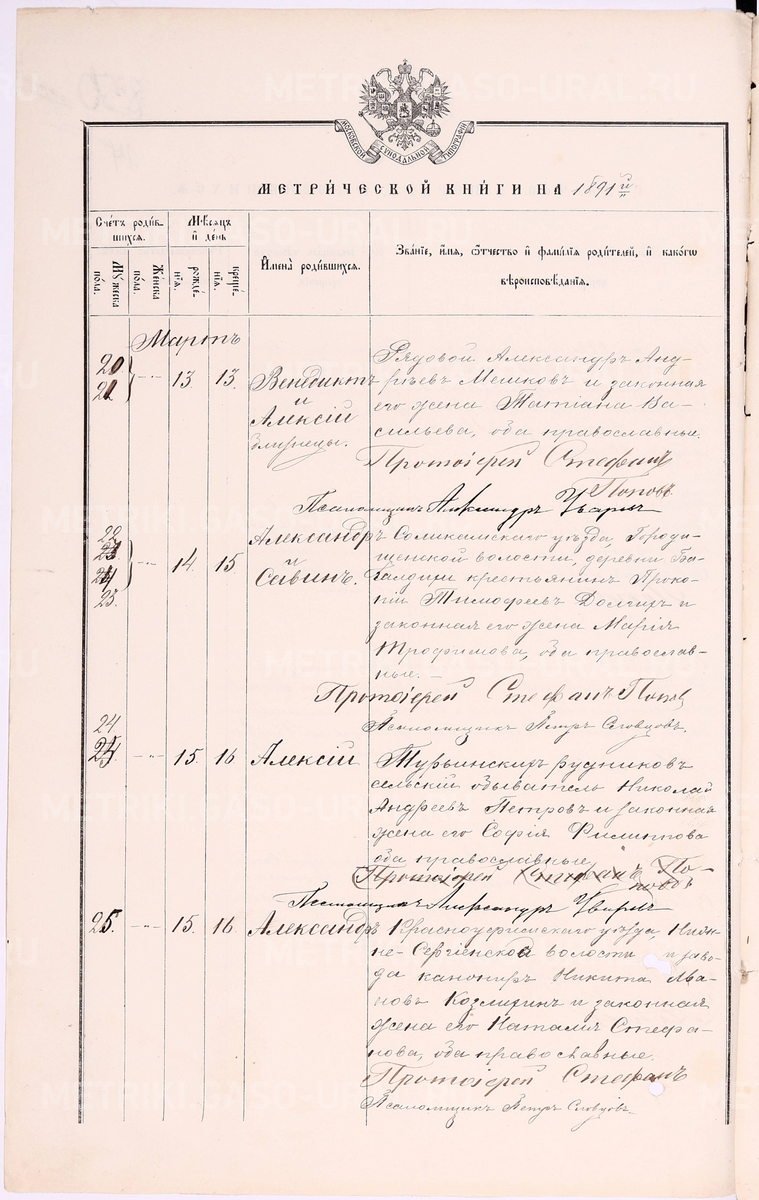 МОСКОВСКОЙ СѴНОДАЛЬНОЙ ТИПОГРАФІИ
МЕТРИ́ЧЕСКОЙ КНИ́ГИ НА 1891 й
Счетъ роди́вшихсѧ.
Мѣ́сѧцъ и де́нь
Имена̀ роди́вшихсѧ.
Зва́нїе, и́мѧ, ѻ҆́тчество и фами́лїѧ роди́телей, и како́гѡ
вѣроисповѣ́данїѧ.
Мꙋ́жеска по́ла.
Же́нска по́ла.
рожде́нїѧ.
креще́нїѧ.
Мартъ
20
21
13
13.
Венедиктъ
и
Алексій
близнецы.
Рядовой Александръ Анд-
рѣевъ Мешковъ и законная
его жена Татіана Ва-
сильева, оба православные.
Протоіерей Стефанъ
Поповъ
Псаломщикъ Александръ Уваровъ
22
23
24
23.
14.
15
Александръ
и
Савинъ.
Соликамскаго уѣзда, Городи-
щенской волости, деревни
крестьянинъ Проко-
пій Тимофеевъ Долгихъ и
законная его жена Марія
Трофимова, оба православ-
ные. —
Протоіерей Стефанъ Поповъ
Псаломщикъ Петръ Словцовъ.
24
25.
15.
16
Алексій
Турьинскихъ рудниковъ
сельскій обыватель Николай
Андреевъ Петровъ и законная
жена его Софія Филиппова
оба православные
Протоіерей Стефанъ По-
повъ
Псаломщикъ Александръ Уваровъ
25.
15.
16.
Александръ
Красноуфимскаго уѣзда, Ниж-
не-Сергіенской волости и заво-
да канониръ Никита Ива-
новъ и законная
жена его Наталія Стефа-
нова, оба православные.
Протоіерей Стефанъ
Псаломщикъ Петръ Словцовъ.
METRIKI.GASO-URAL.RU